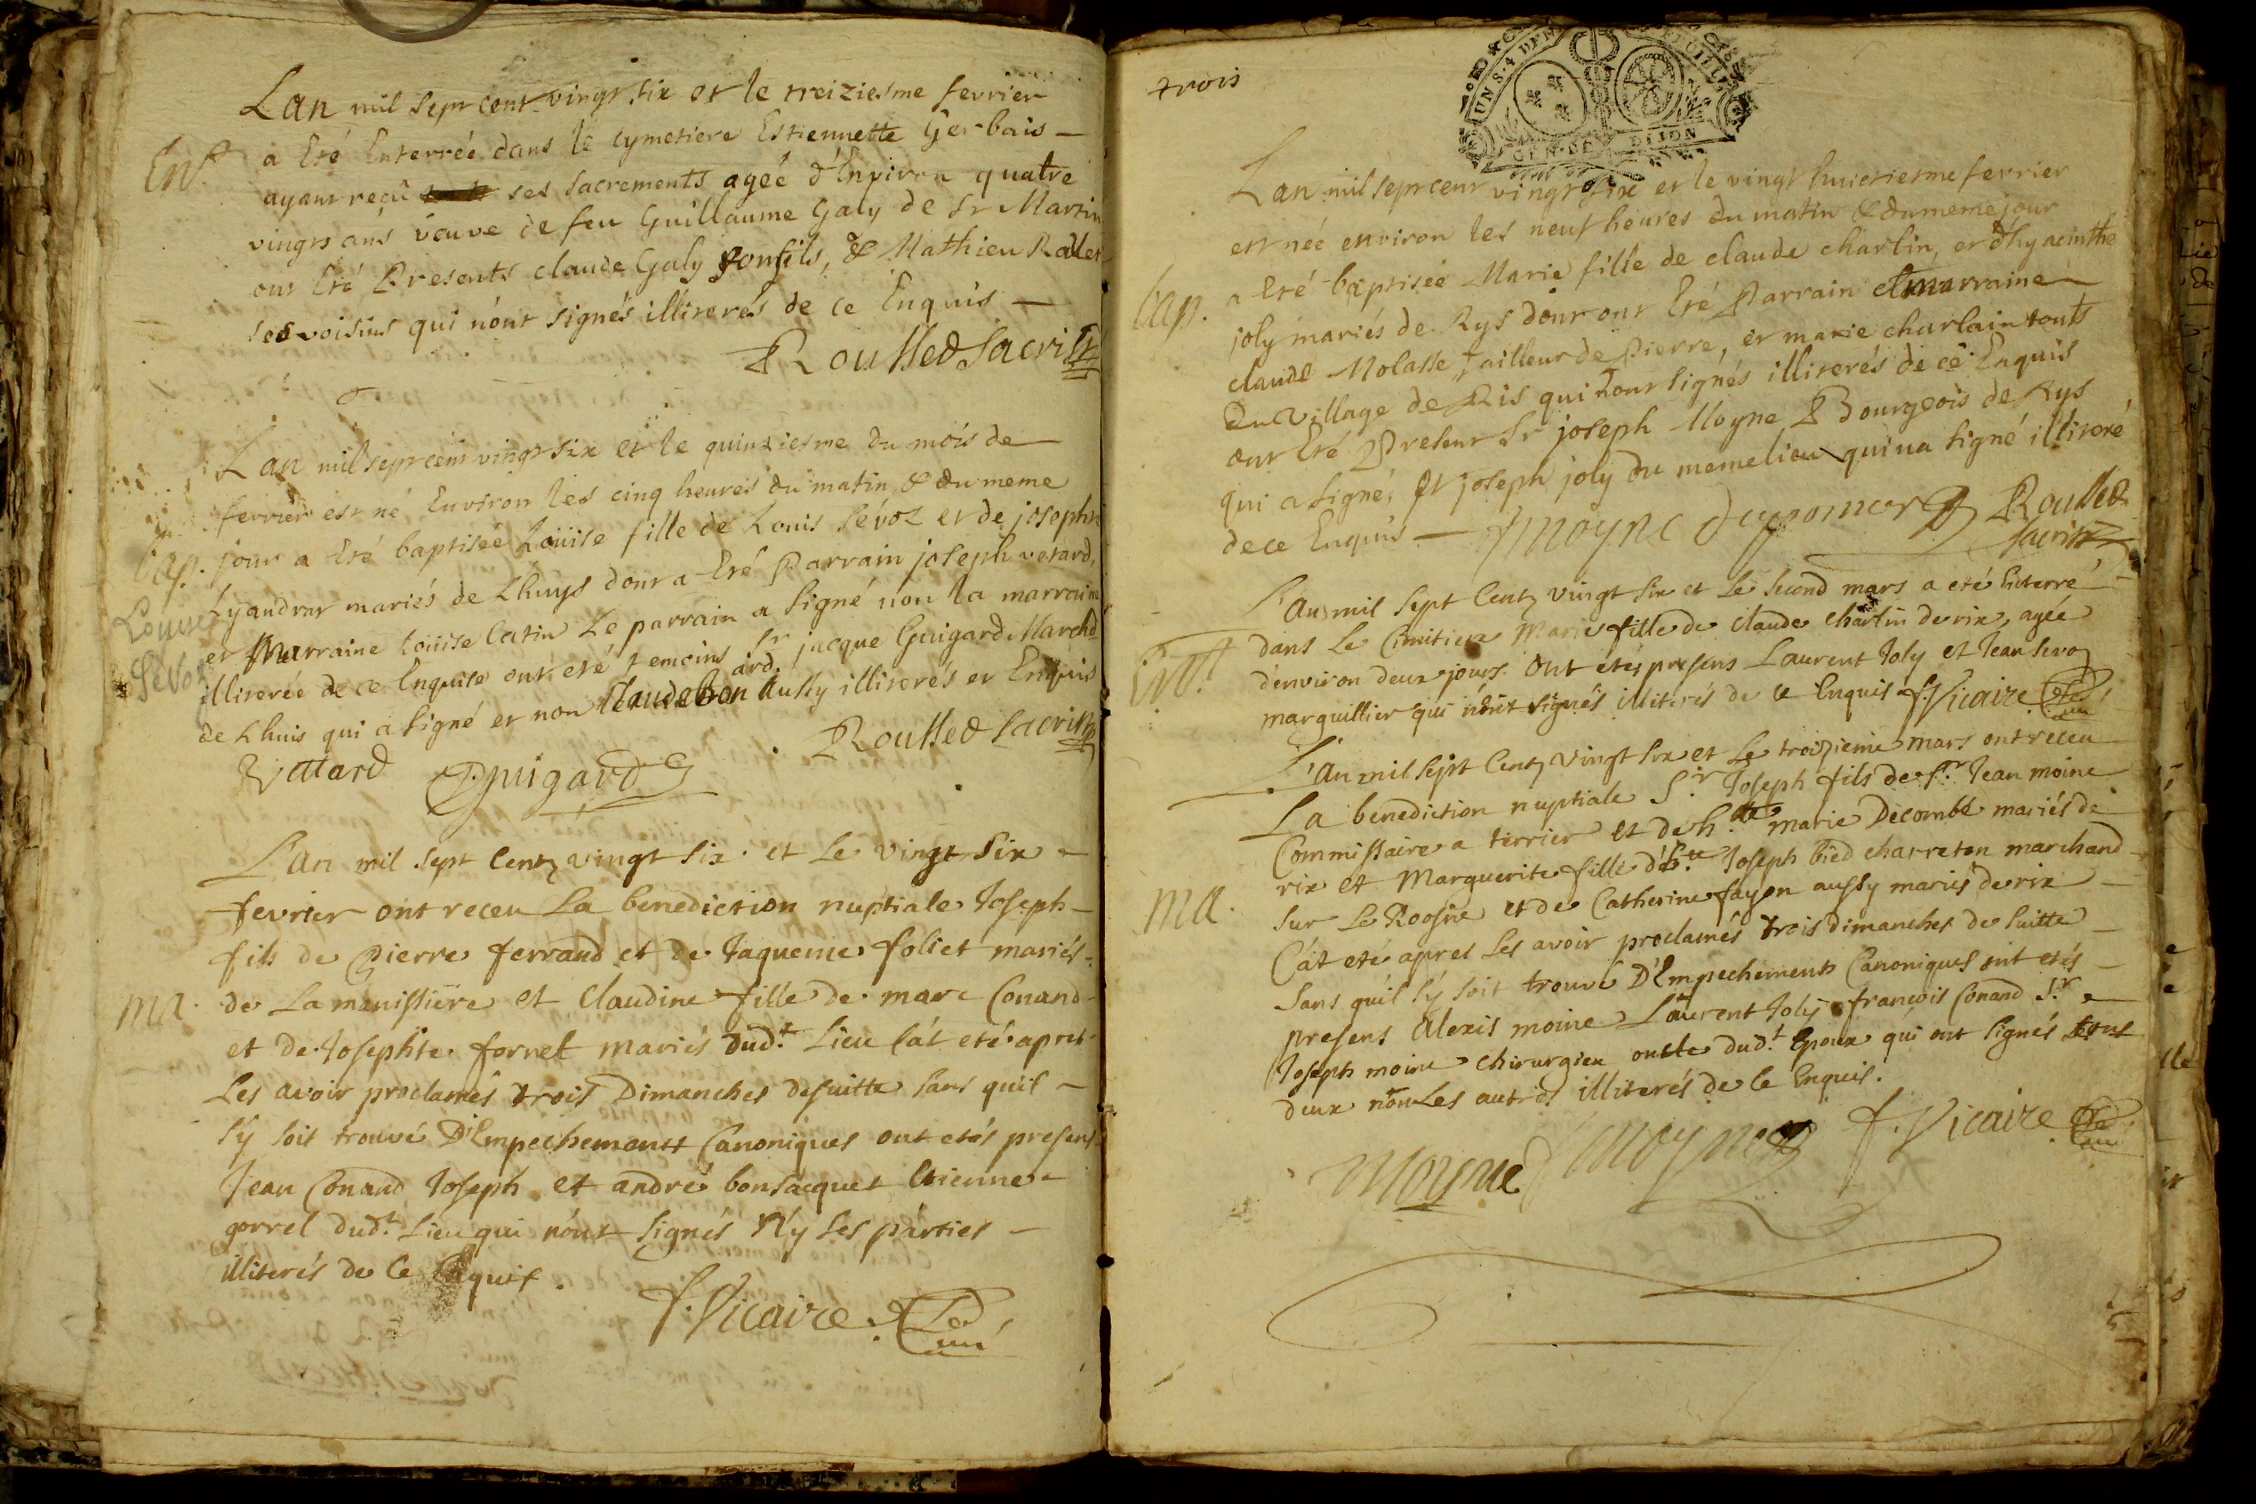 Lan mil sept cent vingt six et le treiziesme fevrier
Ent.
a Eté Enterrée dans le cymetiere Estiennette Gerbais
ayant reçû ses sacrements agée d'Environ quatre
vingts ans veuve de feu Guillaume Galy de St Martin
ont Eté Presents claude Galy son fils, & Mathieu
ses voisins qui n'ont signés illiterés de ce Enquis
Rousset Sacrist
Lan mil sept cent vingt six et le quinziesme du mois de
fevrier est né Environ les cinq heures du matin & du meme
Bap. jour a Eté baptisée Loüise fille de Louis Sevoz et de josephte
Louise
Sevoz
Lyandrat mariés de Lhuys dont a Eté Parrain joseph vetard,
et Marraine loüise Catin Le parrain a signé non la marraine
illiterée de ce Enquise ont eté temoins Sr jacque Guigard Marchd
de Lhuis qui a signé et non Claude bon ard. Aussy illiterés et Enquis
Rousset Sacrist
Vatard Guigard
L'an mil sept Cent vingt six et Le vingt six
fevrier ont receu La benediction nuptiale Joseph
fils de Pierre ferrand et de Jaquemie foliet mariés
ma. de La manissiere et Claudine fille de marc Conand
et de Josephte fornet mariés dud.t Lieu Ca't eté apres
Les avoir proclamés trois Dimanches de suitte sans quil
s'y soit trouvé D'Empechements Canoniques ont etés presens
Jean Conand Joseph et andré bonjacquet Etienne
gorrel dud.t Lieu qui n'ont signés N'y Les parties
illiterés de Ce Enquis.
f. Vicaire Curé
trois
UN S. 4 DEN
GEN. DE DIJON
Lan mil sept cent vingt six et le vingt huictiesme fevrier
est née environ les neuf heures du matin & du meme jour
Bap. a Eté baptisée Marie fille de claude charlin, et d'hyacinthe
joly mariés de Rys dont ont Eté Parrain et marraine
claude Molasse tailleur de Pierre, et marie charlain touts
Du Village de Ris qui n'ont signés illiterés de ce Enquis
ont Eté Present Sr joseph Moyne Bourgeois de Rys
qui a signé, Et joseph joly du meme lieu qui na signé illiteré
de ce Enquis Moyne Rousset
Sacrist
L'an mil sept Cent vingt six et Le second mars a eté Enterré
Ent.
dans Le Cimitiere Marie fille de Claude charlin de rix, agée
denviron deux jours. Ont etés presens Laurent Joly et Jean Sevoz
marguillier qui n'ont signés illiterés de ce Enquis f. Vicaire Curé
L'an mil sept Cent vingt six et Le troizieme mars ont receu
La benediction nuptiale S.r Joseph fils de S.r Jean moine
Commissaire a terrier et de h.te marie Decombe mariés de
rix et Marguerite fille d'h.te Joseph bied charreton marchand
ma. sur Le Roosne et de Catherine fayon aussy mariés de rix
Ca't eté apres Les avoir proclamés trois dimanches de suitte
sans qu'il s'y soit trouvé D'Empechements Canoniques ont etés
presens Alexis moine Laurent Joly francois Conand S.r
Joseph moine chirurgien oncle dud.t Epoux qui ont signés tous
deux non Les autres illiterés de Ce Enquis.
Moyne Moyne f. Vicaire Curé